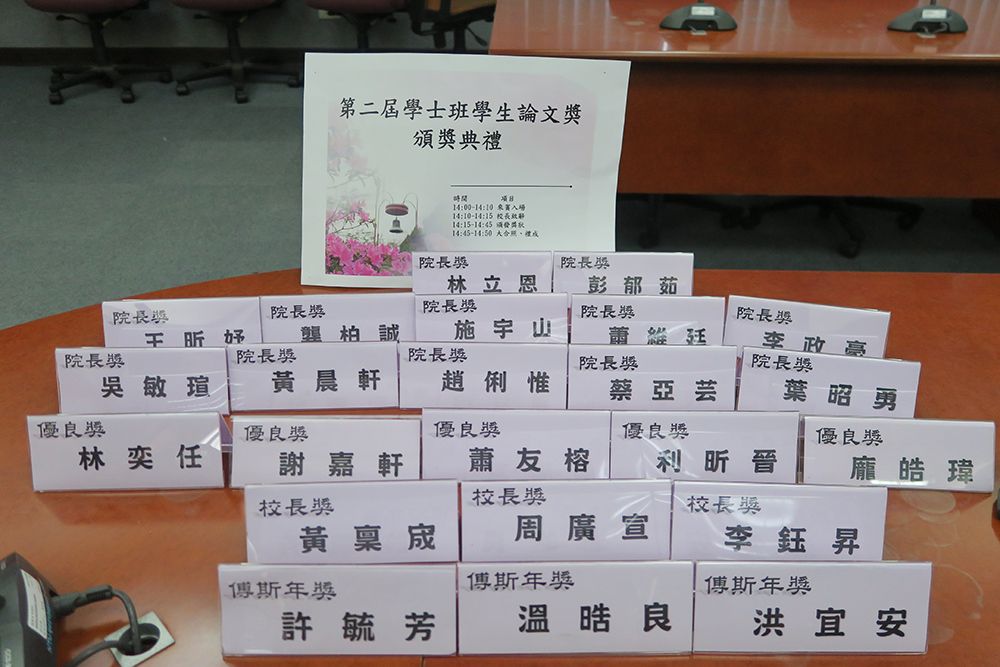 第二屆學士班學生論文獎
頒獎典禮
時間 項目
14:00-14:10 來賓入場
14:10-14:15 校長致辭
14:15-14:45 頒發獎狀
14:45-14:50 大合照、禮成
院長獎 院長獎
林立恩 彭郁茹
院長獎 院長獎 院長獎 院長獎 院長獎
王昕妤 龔柏誠 施宇山 蕭維廷 李政豪
院長獎 院長獎 院長獎 院長獎 院長獎
吳敏瑄 黃晨軒 趙俐惟 蔡亞芸 葉昭勇
優良獎 優良獎 優良獎 優良獎 優良獎
林奕任 謝嘉軒 蕭友榕 利昕晉 龐皓瑋
校長獎 校長獎 校長獎
黃稟宬 周廣宣 李鈺昇
傅斯年獎 傅斯年獎 傅斯年獎
許毓芳 溫晧良 洪宜安